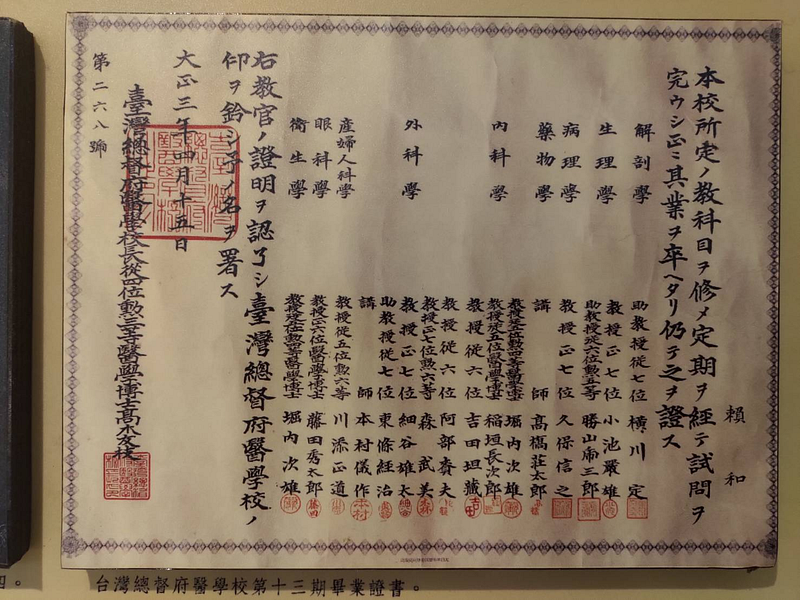 賴和
本校所定ノ教科目ヲ修メ定期ヲ經テ試問ヲ
完ウシ正ニ其業ヲ卒ヘタリ仍テ之ヲ證ス
解剖學
助教授從七位 橫川定
生理學
教授正七位 小池嚴雄
助教授從六位勳五等 勝山虎三郎
病理學
教授正七位 久保信之
藥物學
講師 高橋莊太郎
內科學
堀內次雄
教授從五位醫學博士 稻垣長次郎
教授從六位 吉田坦藏
教授從六位 阿部齋夫
外科學
教授正七位勳六等 森武美
教授正七位 細谷雄太
助教授從七位 東條經治
講師 本村儀作
產婦人科學
教授從五位勳六等 川添正道
眼科學
教授正六位醫學博士 藤田秀太郎
衛生學
堀內次雄
右教官ノ證明ヲ認了シ臺灣總督府醫學校ノ
印ヲ鈐シ予ノ名ヲ署ス
大正三年四月十五日
臺灣總督府醫學校長從四位勳三等醫學博士高木友枝
第二六八號
台灣總督府醫學校第十三期畢業證書。
四。